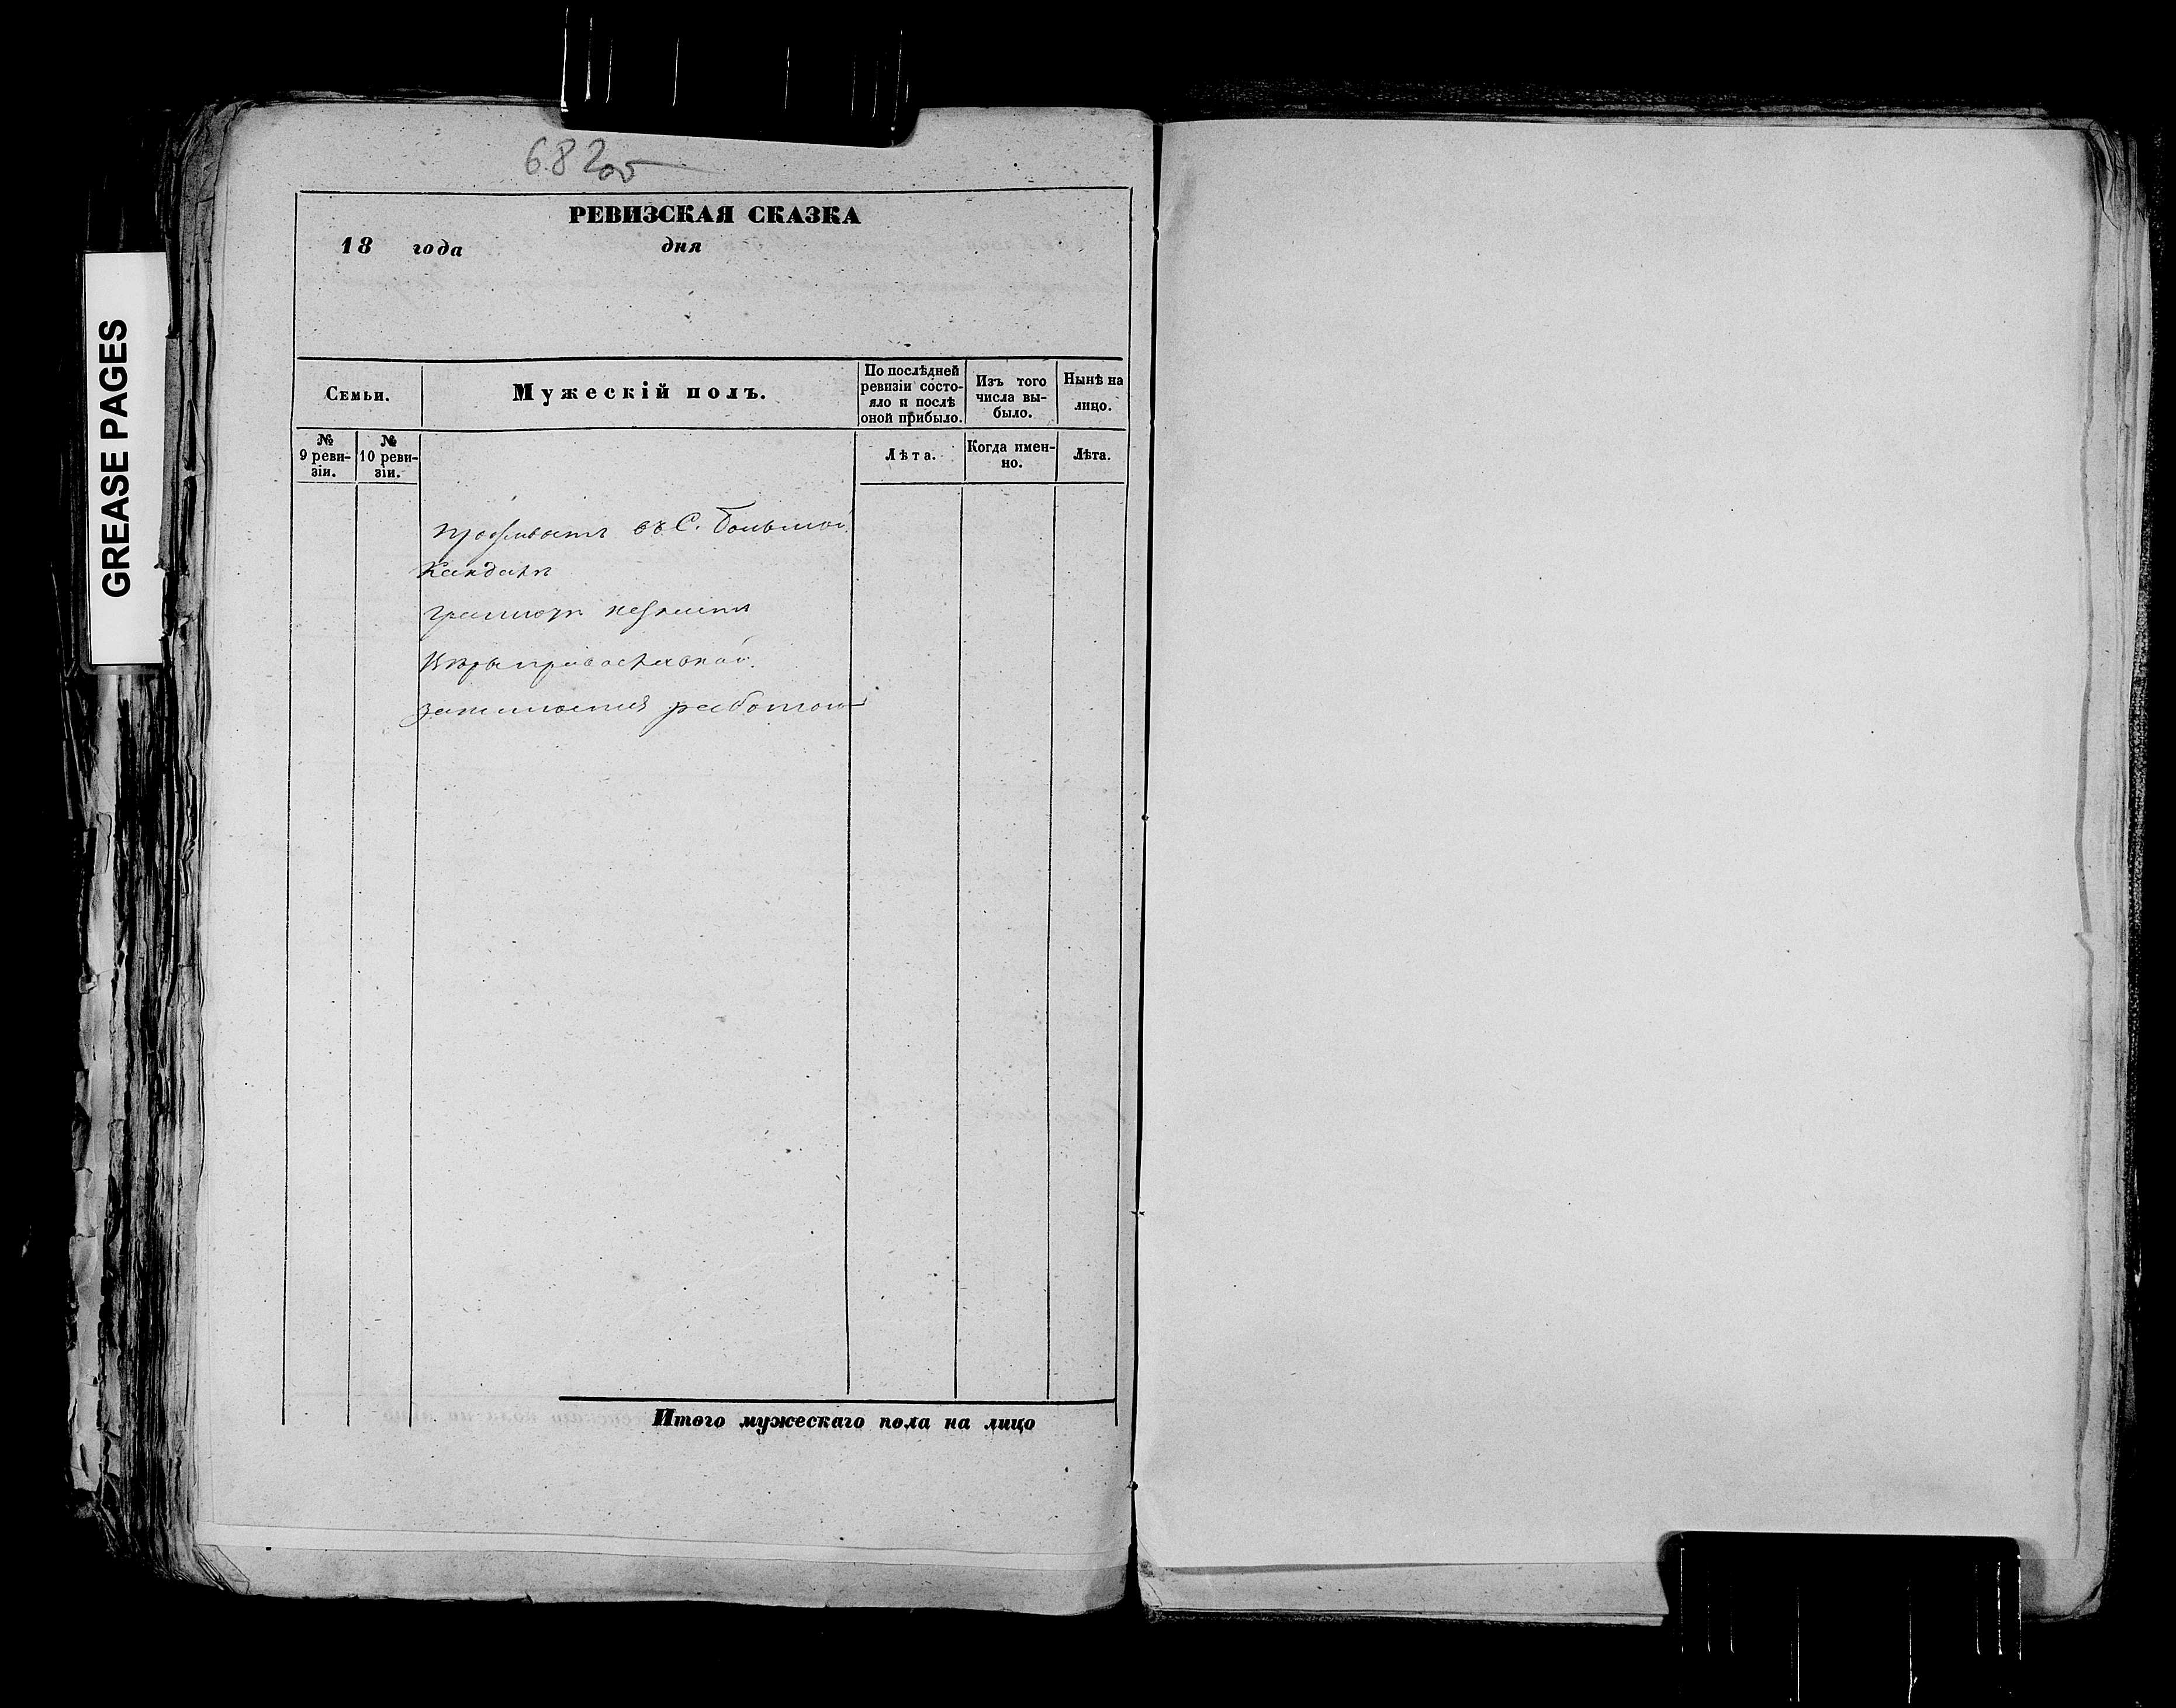 682 об
РЕВИЗСКАЯ СКАЗКА
18 года дня
Семьи.
Мужескій полъ.
По послѣдней ревизіи состо-
яло и послѣ оной прибыло.
Изъ того числа вы-
было.
Нынѣ на лицо.
№ 9 реви-
зіи.
№ 10 реви-
зіи.
Лѣта.
Когда имен-
но.
Лѣта.
проживаетъ въ С. Большой
Кандалѣ
грамотѣ незнаетъ
Вѣры православной.
занимается работой
Итого мужескаго пола на лицо
GREASE PAGES